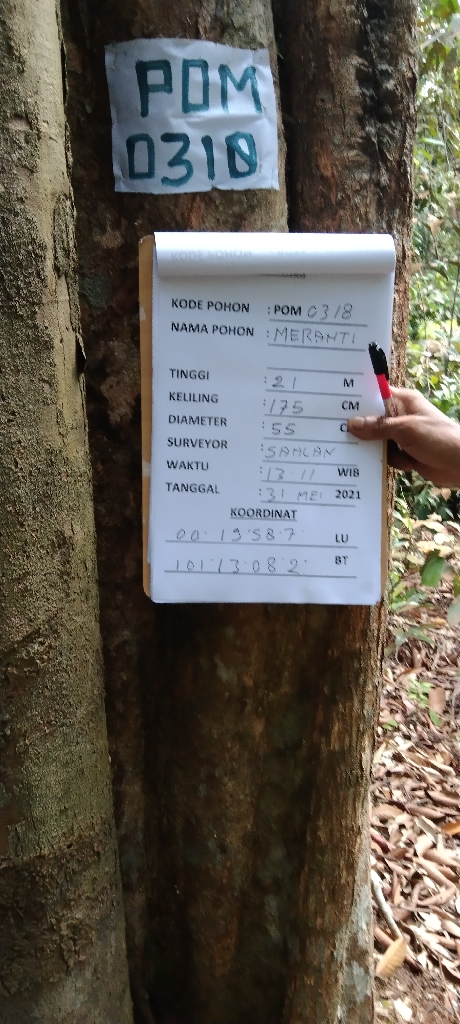 POM
0310
KODE POHON : POM 0318
NAMA POHON : MERANTI
TINGGI : 21 M
KELILING : 175 CM
DIAMETER : 55 C
SURVEYOR : SAHLAN
WAKTU : 13 11 WIB
TANGGAL : 31 MEI 2021
KOORDINAT
00 19 58 7 LU
101 13 08 2 BT